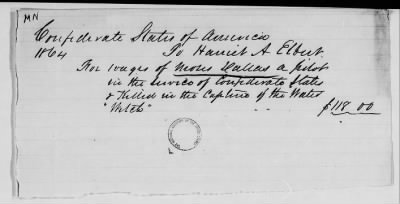 MN
Confederate States of America
1864 To Harriet A Elbert
For wages of Moses Dallas a pilot
in the service of Confederate States
& Killed in the Capture of the Water
"Witch" $118.00